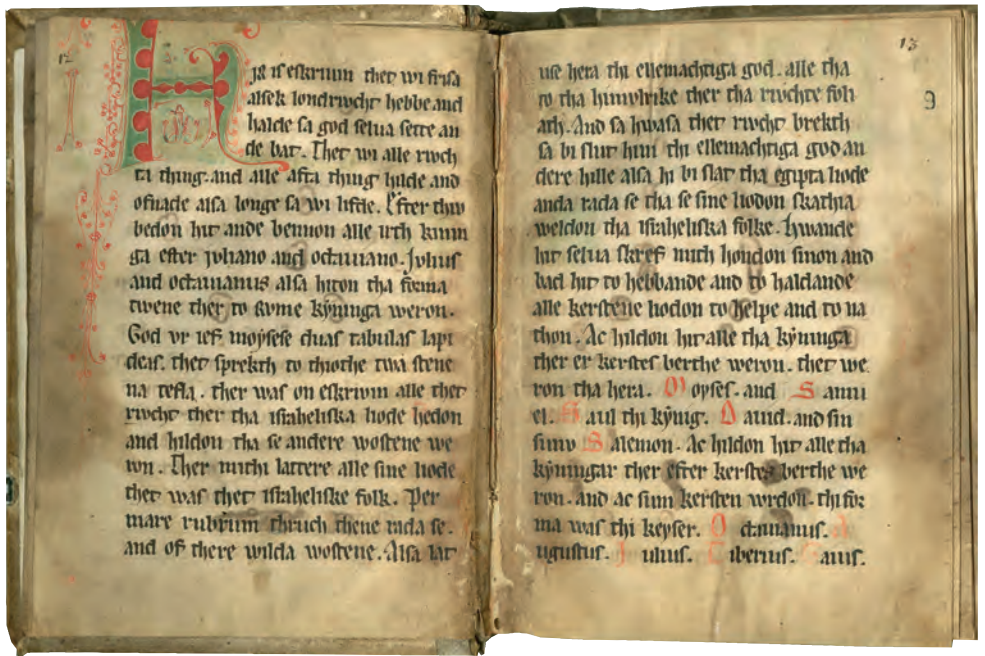 12
Hir is eskriuin thet wi frisa
alsek londriucht hebbe and
halde sa god selua sette an
de bat. Thet wi alle riuch
ta thing. and alle afta thing hilde and
ofnade alsa longe sa wi lifde. Efter thiu
bedon hit ande bennon alle irth kinin
ga efter juliano and octauiano. Julius
and octauianus alsa hiton tha forma
twene ther to rume kÿninga weron.
God ur ief moÿsese duas tabulas lapi
deas. thet sprekth to thiothe twa stene
na tefla. ther was on eskriuin alle thet
riucht ther tha israheliska liode hedon
and hildon tha se andere wostene we
ron. Ther mithi lattere alle sine liode
thet was thet israheliske folk. Per
mare rubrum thruch thene rada se.
and of there wilda wostene. Alsa lat
13
9
use hera thi ellemachtiga god. alle tha
to tha himulrike ther tha riuchte folg
ath. And sa hwasa thet riucht brekth
sa bi slut hini thi ellemachtiga god an
dere hille alsa hi bi slat tha egipta liode
anda rada se tha se sine liodon skathia
weldon tha israheliska folke. Hwande
hit selua skref mith hondon sinon and
bad hit to hebbande and to haldande
alle kerstene liodon to helpe and to na
thon. Ac hildon hit alle tha kÿninga
ther er kerstes berthe weron. thet we
ron tha hera. Moyses. and Samu
el. Saul thi kÿnig. Dauid. and sin
sunu Salemon. Ac hildon hit alle tha
kÿningar ther efter kerstes berthe we
ron. and ac sum kersten wrdon. thi for
ma was thi keyser. Octauianus. A
ugustus. Julius. Tiberius. Gaius.